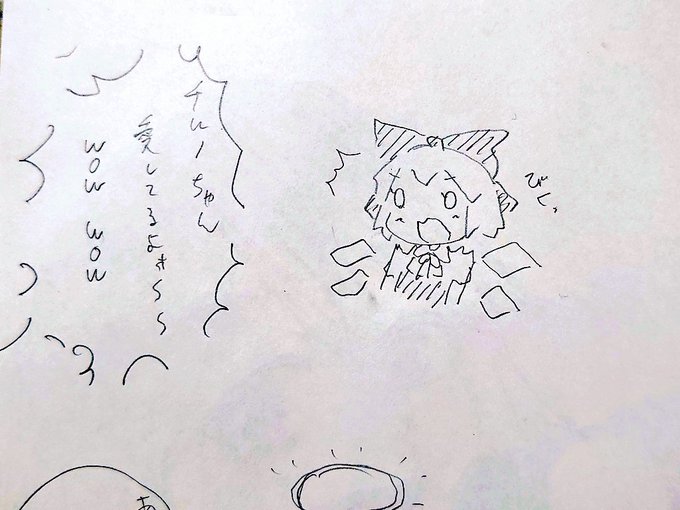 チルノちゃん
愛してるよォ〜〜
wow wow
びくっ
あ